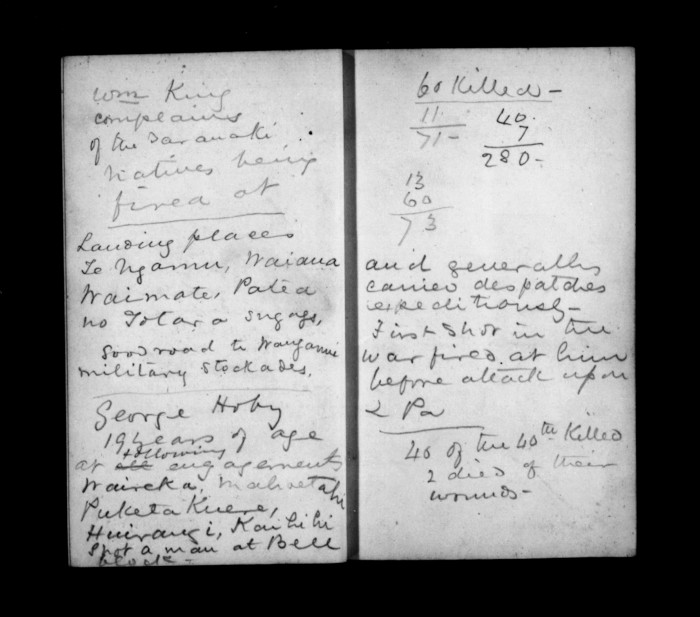 Wm King
complains
of the Taranaki
Natives being
fired at
Landing places
Te Ngamu, Waiana
Waimate, Patea
no Totara
Good road to Wanganui
military stockades.
George Hoby
19 years of age
following
at all engagements
Waireka, Mahoetahi
Puketa Kuere,
Huirangi, Kaihihi
Shot a man at Bell
block -
60 Killed -
11
71 -
40
7
280 -
13
60
73
and generally
carried despatches
expeditiously -
First shot in the
War fired at him
before attack upon
L Pa
40 of the 40th Killed
2 died of their
wounds -